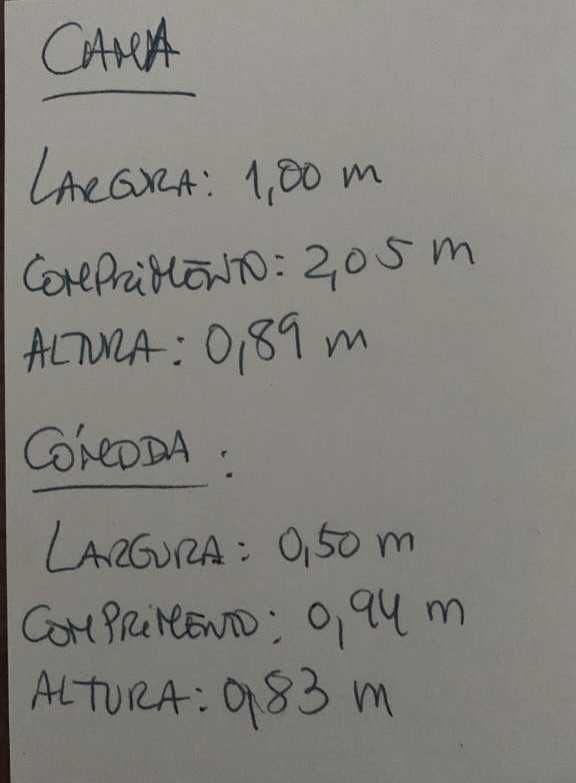 CAMA
LARGURA: 1,00 m
COMPRIMENTO: 2,05 m
ALTURA: 0,89 m
CÓMODA:
LARGURA: 0,50 m
COMPRIMENTO: 0,94 m
ALTURA: 0,83 m